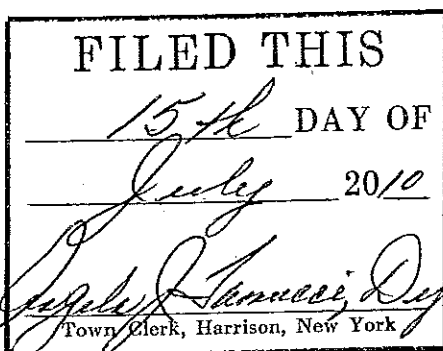 FILED THIS
15th DAY OF
July 2010
Town Clerk, Harrison, New York